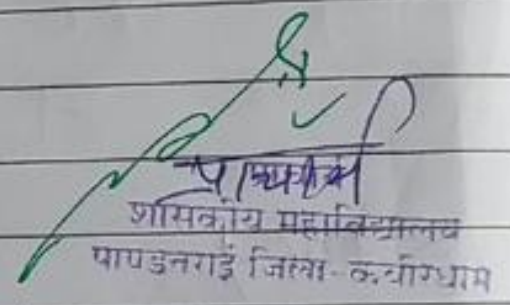 प्राचार्य
शासकीय महाविद्यालय
पाण्डातराई जिला- कबीरधाम